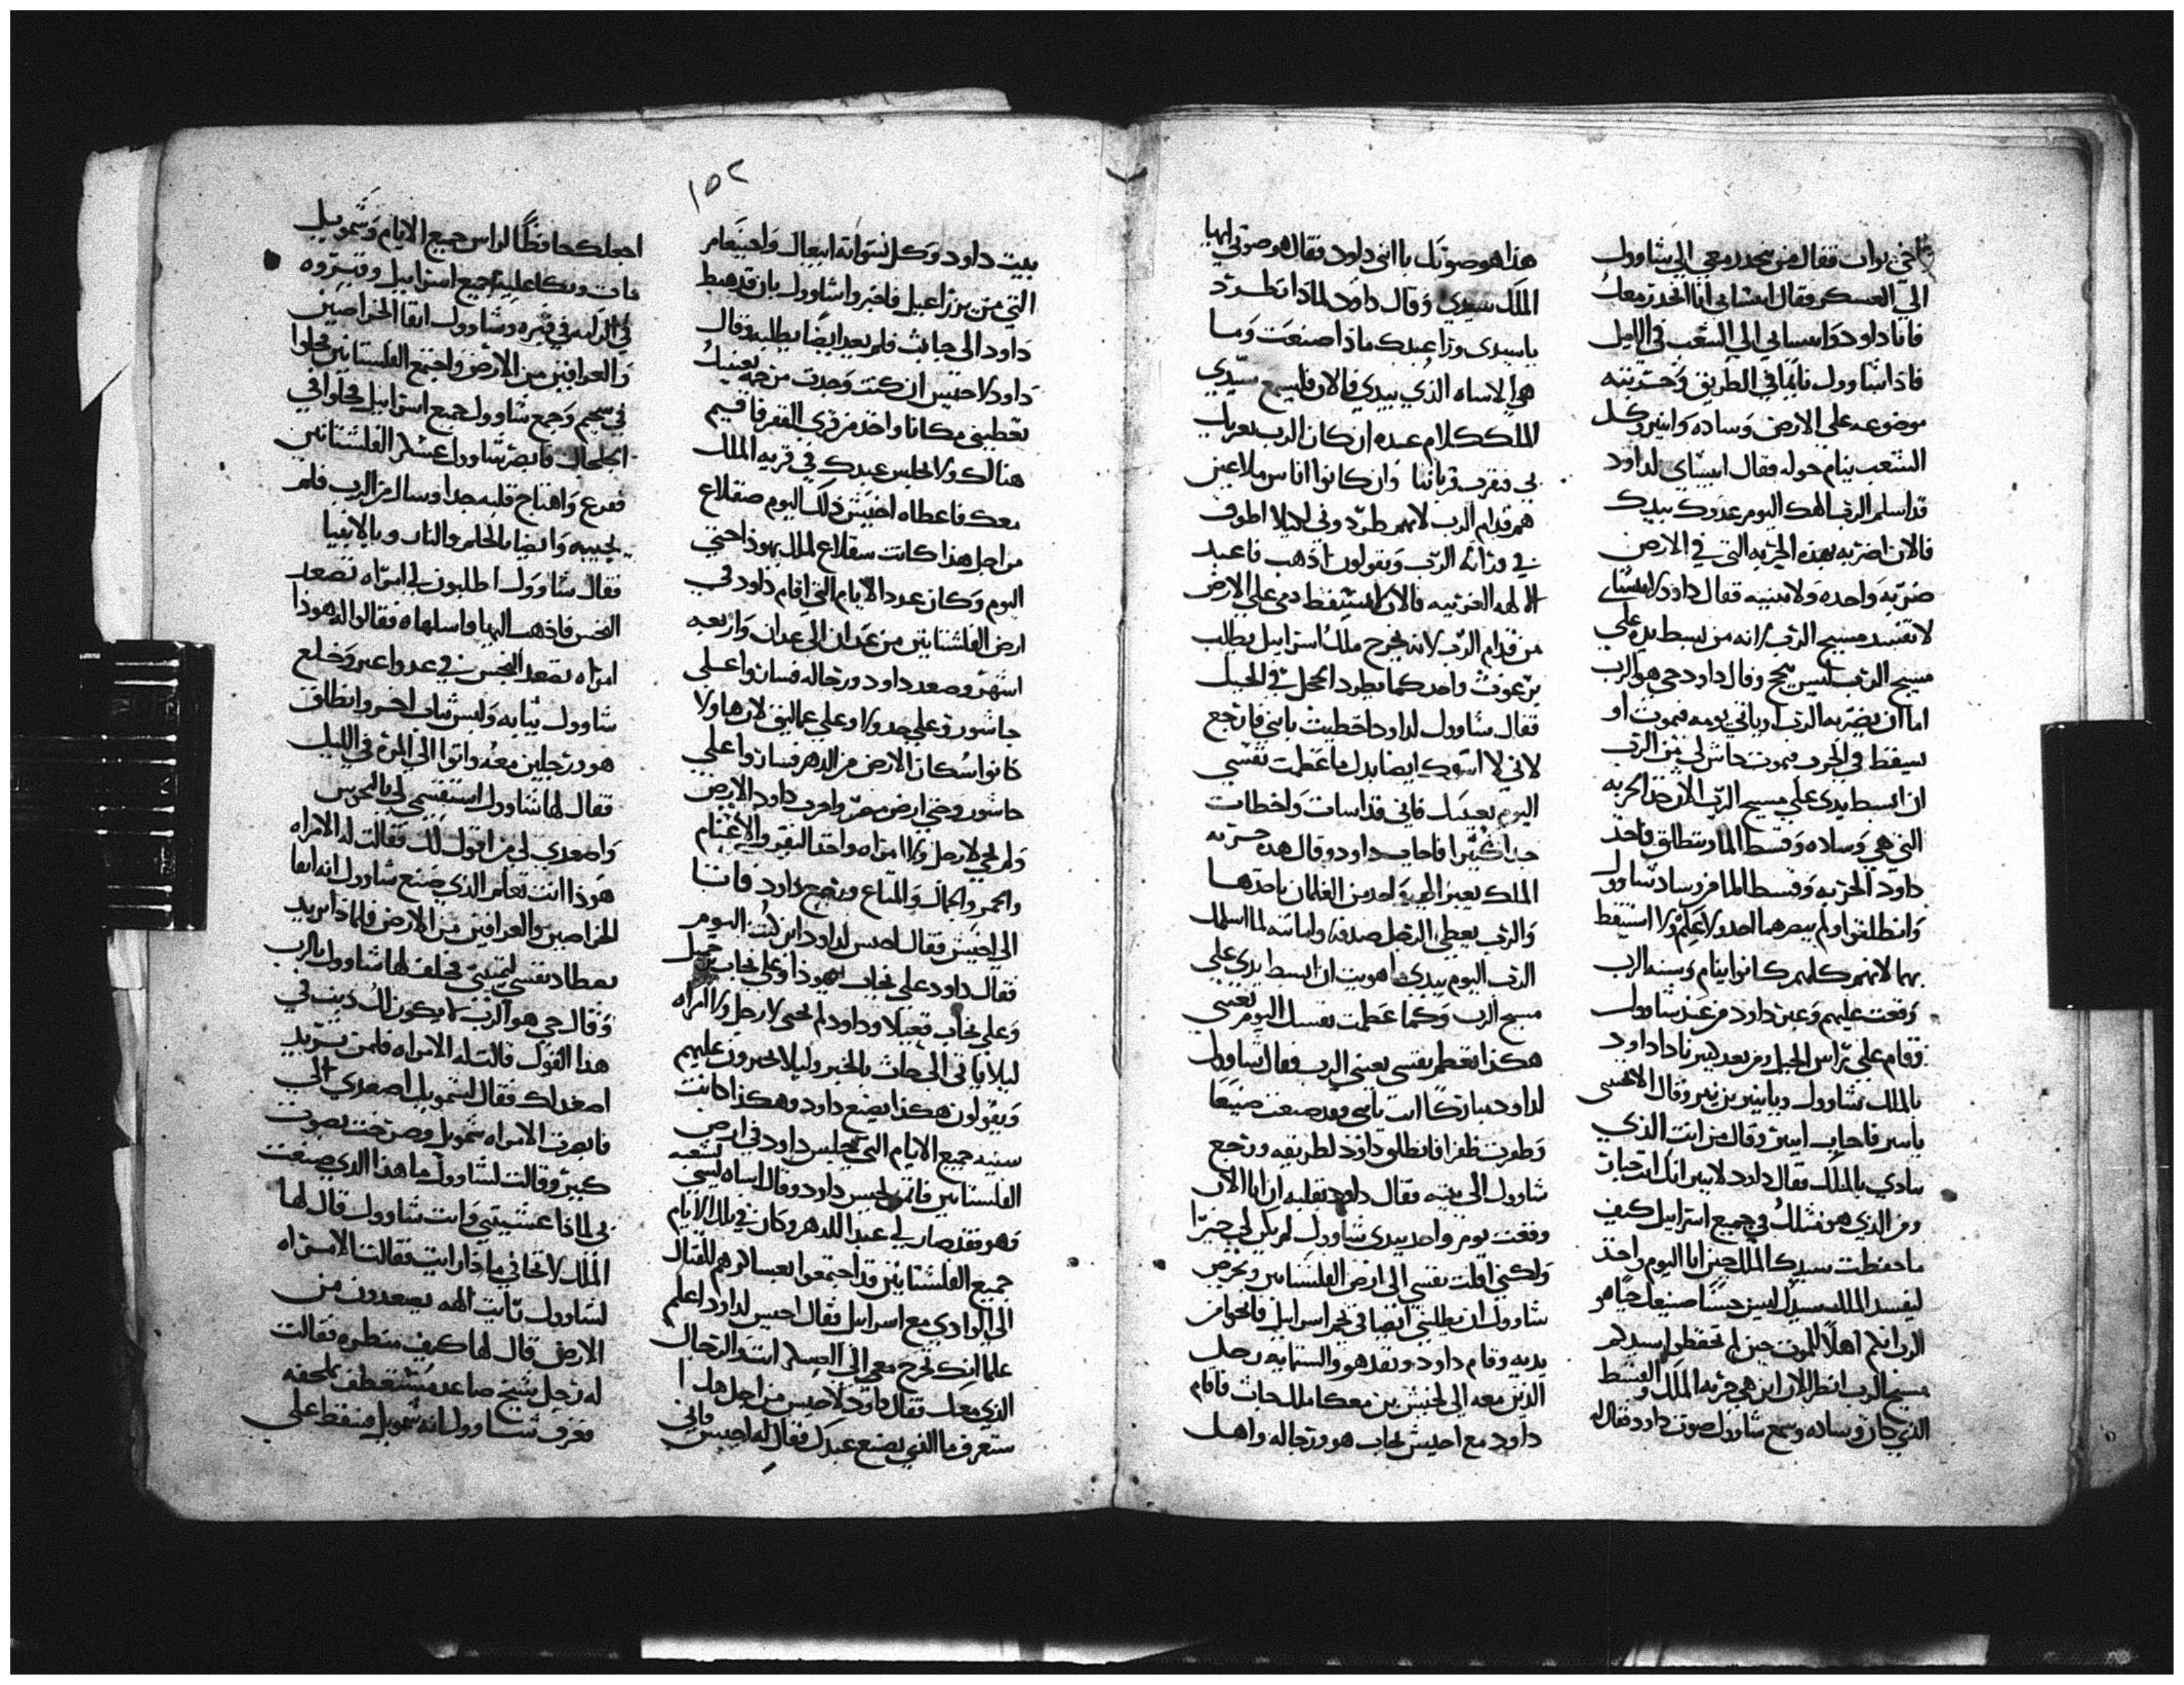 اخي يواب فقال من ينحدر معي الي شاوول
الي العسكر فقال ابيشاي انا انحدر معك
فاتا داود وابيساي الي الشعب في الليل
فاذا شاوول نايما في الطريق وحربته
موضوعه علي الارض وساده وابنير وكل
الشعب ينام حوله فقال ابيساي لداود
قد اسلم الرب الهك اليوم عدوك بيدك
فالان اضربه بهذه الحربه التي في الارض
ضربه واحده ولا تنييه فقال داود لابيشاي
لا تفسد مسيح الرب لانه من يبسط يده علي
مسيح الرب ليس ينج وقال داود حي هو الرب
اما ان يضربه الرب او ياتي يومه فيموت او
يسقط في الحرب فيموت حاش لي من الرب
ان ابسط يدي علي مسيح الرب الان خذ الحربه
التي هي وساده وقسط الما وننطلق فاخذ
داود الحربه وقسط الما من وساد شاوول
وانطلقوا ولم يبصرهما احد ولا علم ولا استيقظ
بهما لانهم كلهم كانوا ينام وسنه الرب
وقعت عليهم وعبر داود من عند شاوول
وقام علي راس الجبل من بعد كبير نادا داود
بالملك شاوول وبابنير بن نير وقال الا تجيبني
يابنير فاجاب ابينر وقال من انت الذي
ينادي بالملك فقال داود لابنير انك انت جبار
ومن الذي هو مثلك في جميع اسرايل كيف
ما حفظت سيدك الملك حين اتا اليوم واحد
ليفسد الملك سيدك ليس حسنا صنيعك حيا هو
الرب انكم اهلا للموت حين لم تحفظوا سيدكم
مسيح الرب انظر الان اين هي حربه الملك والقسط
الذي كان وساده وسمع شاوول صوت داود فقال له
هذا هو صوتك يا ابني داود فقال هو صوتي ايها
الملك سيدي وقال داود لماذا تطرد
ياسيدي ورا عبدك ماذا صنعت وما
هي الاساه الذي بيدي فالان فليسمع سيدي
الملك كلام عبده ان كان الرب يغريك
بي فنقرب قرباننا وان كانوا اناس ملاعين
هم قدام الرب لانهم طردوني لكيلا اطوف
في وراثه الرب ويقولون اذهب فاعبد
الالهه الغريبه فالان لا يسقط دمي علي الارض
من قدام الرب لانه يخرج ملك اسرايل يطلب
برغوث واحد كما يطرد الحجل في الجبل
فقال شاوول لداود اخطيت يابني فارجع
لاني لا اسوك ايضا بدل ما عظمت نفسي
اليوم بعينيك فاني قد اسات واخطات
جدا كثيرا فاجاب داود وقال هذه حربه
الملك يعبر الي واحد من الغلمان ياخذها
والرب يعطي الرجل صدقه وامانته لما اسلمك
الرب اليوم بيدي ما هويت ان ابسط يدي علي
مسيح الرب وكما عظمت نفسك اليوم بعيني
هكذا تعظم نفسي بعيني الرب فقال شاوول
لداود مباركا انت يابني وقد صنعت صنيعا
وظفرت ظفرا فانطلق داود لطريقه ورجع
شاوول الي بيته فقال داود بقلبه ان انا الان
وقعت يوم واحد بيدي شاوول لم يكن لي خيرا
ولكني افلت نفسي الي ارض الفلستانيين ويحرص
شاوول ان يطلبني ايضا في تخم اسرايل فانجوا من
يديه وقام داود ونفذ هو والستمايه رجل
الذين معه الي اخيش بن معكا ملك جاث فاقام
داود مع اخيش بجاث هو ورجاله واهل
١٥٢
بيت داود وكل نسوانه ابيغال واحينعام
التي من يزراعيل فاخبروا شاوول بان قد هبط
داود الي جاث فلم يعد ايضا يطلبه وقال
داود لاخيس ان كنت وجدت مرحمه بعينيك
تعطيني مكانا واحد من قري القفر فاقيم
هنالك ولا يجلس عبدك في قريه الملك
معك فاعطاه اخيش ذلك اليوم صقلاع
من اجل هذا كانت سقلاع لملك يهوذا حتي
اليوم وكان عدد الايام التي اقام داود في
ارض الفلشتانيين من عدان الي عدان واربعه
اشهر وصعد داود ورجاله فساروا علي
جاشور وعلي جدولا وعلي عماليق لان هاولا
كانوا سكان الارض من الدهر فساروا علي
جاشور وحتي ارض مصر واخرب داود الارض
ولم يحي لا رجل ولا امراه واخذ البقر والاغنام
والحمر والجمال والمتاع ورجع داود فاتا
الي اخيش فقال اخيس لداود اين كنت اليوم
فقال داود علي نجاب يهوذا وعلي نجاب
وعلي نجاب قعيلا وداود لم يحيي لا رجل ولا امراه
ليلا ياتي الي جاث بالخبر وليلا يخبرون عليهم
ويقولون هكذا يصنع داود وهكذا كانت
سنيه جميع الايام التي يجلس داود في ارض
الفلستانين فاتمن اخيس داود وقال اساه لشعبه
فهو فقد صار لي عبدا للدهر وكان في تلك الايام
جميع الفلشتانين قد اجتمعوا بعساكرهم للقتال
الي الوادي مع اسرايل فقال اخيس لداود اعلم
علما انك تخرج معي الي العسكر انت والرجال
الذي معك فقال داود لاخيس من اجل هذا
ستعرف ما الذي يصنع عبدك فقال له اخيس فاني
اجعلك حافظا لراس جميع الايام وشمويل
مات وبكا عليه جميع اسرايل وقبروه
في الرامه في قبره وشاوول ابقا الخراصين
والعرافين من الارض واجتمع الفلستانين فحلوا
في سجيم وجمع شاوول جميع اسرايل فحلوا في
الجلجال فابصر شاوول عسكر الفلشتانين
ففزع واهتاج قلبه جدا وسال من الرب فلم
يجيبه وايضا بالحلم والنار وبالانبيا
فقال شاوول اطلبون لي امراه تصعد
النجس فاذهب اليها واسلها فقالوا له هوذا
امراه تصعد النجس في عدواعير وخلع
شاوول ثيابه ولبس ثياب اخر وانطلق
هو ورجلين معه واتوا الي المره في الليل
فقال لها شاوول استقسمي لي بالنجس
واصعدي لي من اقول لك فقالت له الامراه
هوذا انت تعلم الذي صنع شاوول انه ابقا
الخراصين والعرافين من الارض فلماذا تريد
تصطاد نفسي لتميتني فحلف لها شاوول بالرب
وقال حي هو الرب لا يكون لك ذنب في
هذا القول قالت له الامراه فلمن تريد
اصعد لك فقال لشمويل اصعدي الي
فابصرت الامراه شمويل وصرخت بصوت
كبير وقالت لشاوول ما هذا الذي صنعت
بي لماذا غشيتني وانت شاوول قال لها
الملك لا تخافي ماذا رايت فقالت الامراه
لشاوول رايت الهه يصعدون من
الارض قال لها كيف منظره فقالت
له رجل شيخ صاعد مشتعطف بملحفه
فعرف شاوول انه شمويل فسقط علي